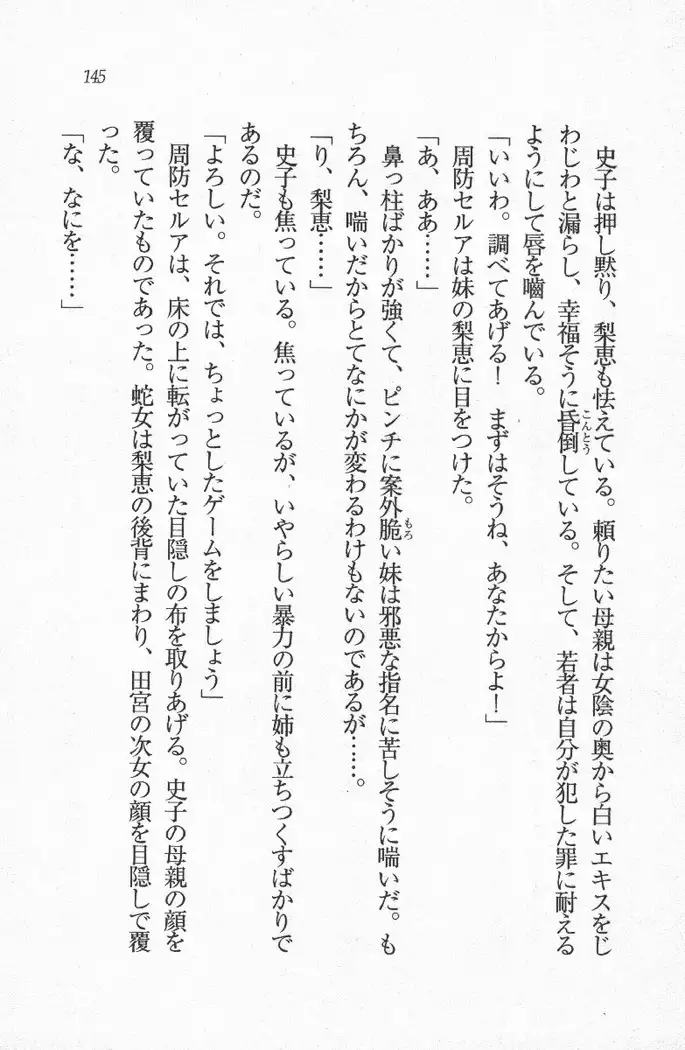 145
史子は押し黙り、梨恵も怯えている。頼りたい母親は女陰の奥から白いエキスをじ
わじわと漏らし、幸福そうに昏倒している。そして、若者は自分が犯した罪に耐える
こんとう
ようにして唇を嚙んでいる。
「いいわ。調べてあげる！　まずはそうね、あなたからよ！」
周防セルアは妹の梨恵に目をつけた。
「あ、ああ……」
鼻っ柱ばかりが強くて、ピンチに案外脆い妹は邪悪な指名に苦しそうに喘いだ。も
もろ
ちろん、喘いだからとてなにかが変わるわけもないのであるが……。
「り、梨恵……」
史子も焦っている。焦っているが、いやらしい暴力の前に姉も立ちつくすばかりで
あるのだ。
「よろしい。それでは、ちょっとしたゲームをしましょう」
周防セルアは、床の上に転がっていた目隠しの布を取りあげる。史子の母親の顔を
覆っていたものであった。蛇女は梨恵の後背にまわり、田宮の次女の顔を目隠しで覆
った。
「な、なにを……」